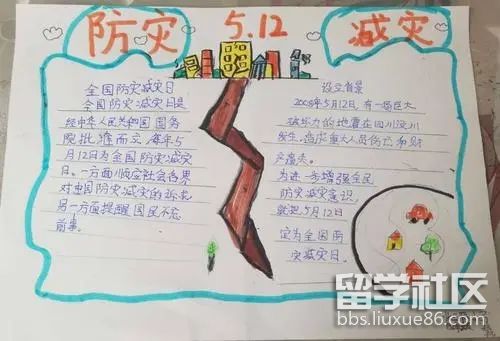 防灾 5.12 减灾
全国防灾减灾日
全国防灾减灾日是
经中华人民共和国国务
院批准而立,每年5
月12日为全国防灾减灾
日。一方面顺应社会各界
对中国防灾减灾的诉求,
另一方面提醒国民不忘
前事。
设立背景
2008年5月12日,有一场巨大
破坏力的地震在四川汶川
发生,造成重大人员伤亡和财
产损失。
为进一步增强全民
防灾减灾意识,
就把5月12日
定为全国防
灾减灾日。
留学社区
bbs.liuxue86.com